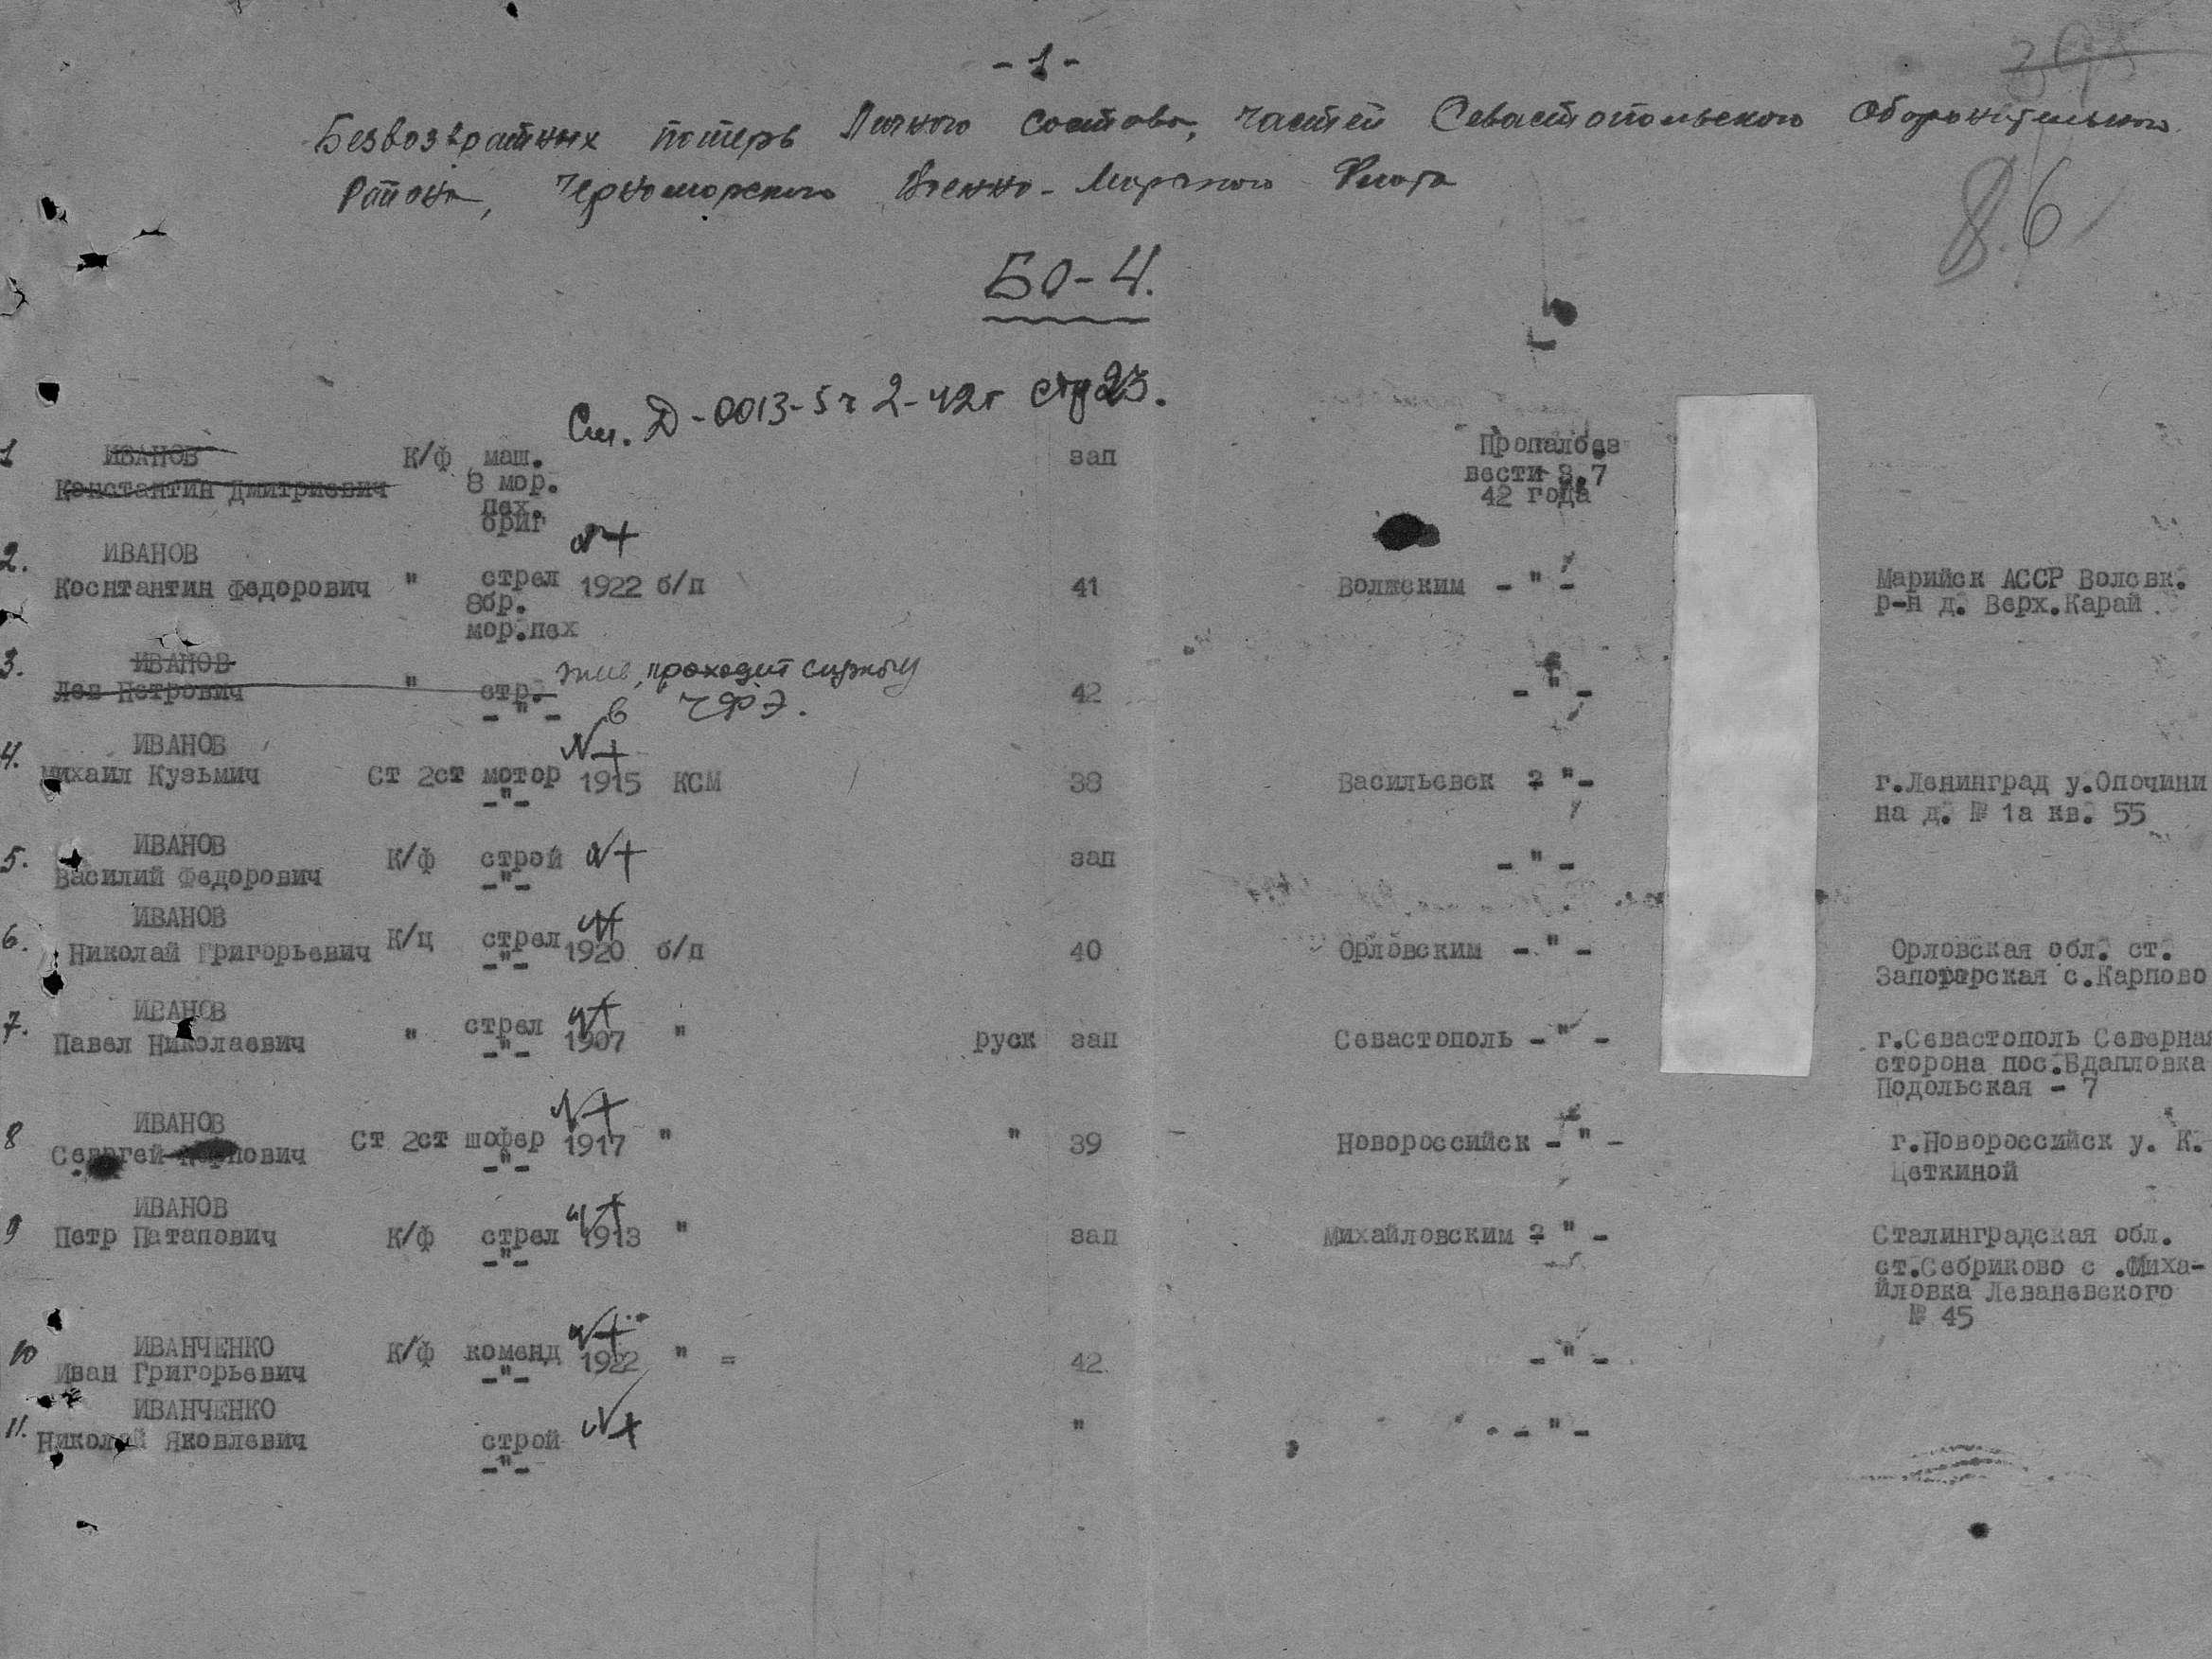 - 1 -
395
Безвозвратных потерь Личного состава, частей Севастопольского Оборонительного
Района, Черноморского Военно-Морского Флота
86
БО-4.
См. Д-0013-5ч 2-42г стр 23.
1 ИВАНОВ К/ф маш. зап Пропал без
Константин Дмитриевич 8 мор. вести 8.7
пех. 42 года
бриг
2. ИВАНОВ
Коснтантин Федорович " стрел 1922 б/п 41 Волжским - " - Марийск АССР Волсвк.
8бр. р-н д. Верх.Карай
мор.пех
3. ИВАНОВ жив, проходит службу
Лев Петрович " стр. 42 - " -
- " - в ЧФЭ.
4. ИВАНОВ
Михаил Кузьмич Ст 2ст мотор 1915 КСМ 38 Васильевск - " - г.Ленинград у.Опочини
-"- на д. № 1а кв. 55
5. ИВАНОВ К/ф строй зап - " -
Василий Федорович -"-
6. ИВАНОВ К/ц стрел 1920 б/п 40 Орловским - " - Орловская обл. ст.
Николай Григорьевич -"- с.Карпово
7. ИВАНОВ стрел
Павел Николаевич " -"- 1907 " руск зап Севастополь - " - г.Севастополь Северная
сторона пос.Бдапловка
Подольская - 7
8 ИВАНОВ Ст 2ст шофер 1917 " " 39 Новороссийск - " - г.Новороссийск у. К.
-"- Цеткиной
9 ИВАНОВ
Петр Патапович К/ф стрел 1913 " зап Михайловским - " - Сталинградская обл.
-"- ст.Себриково с .Миха-
йловка Леваневского
№ 45
10 ИВАНЧЕНКО К/ф коменд 1922 " = 42 - " -
Иван Григорьевич -"-
11. ИВАНЧЕНКО " - " -
Николай Яковлевич строй
-"-